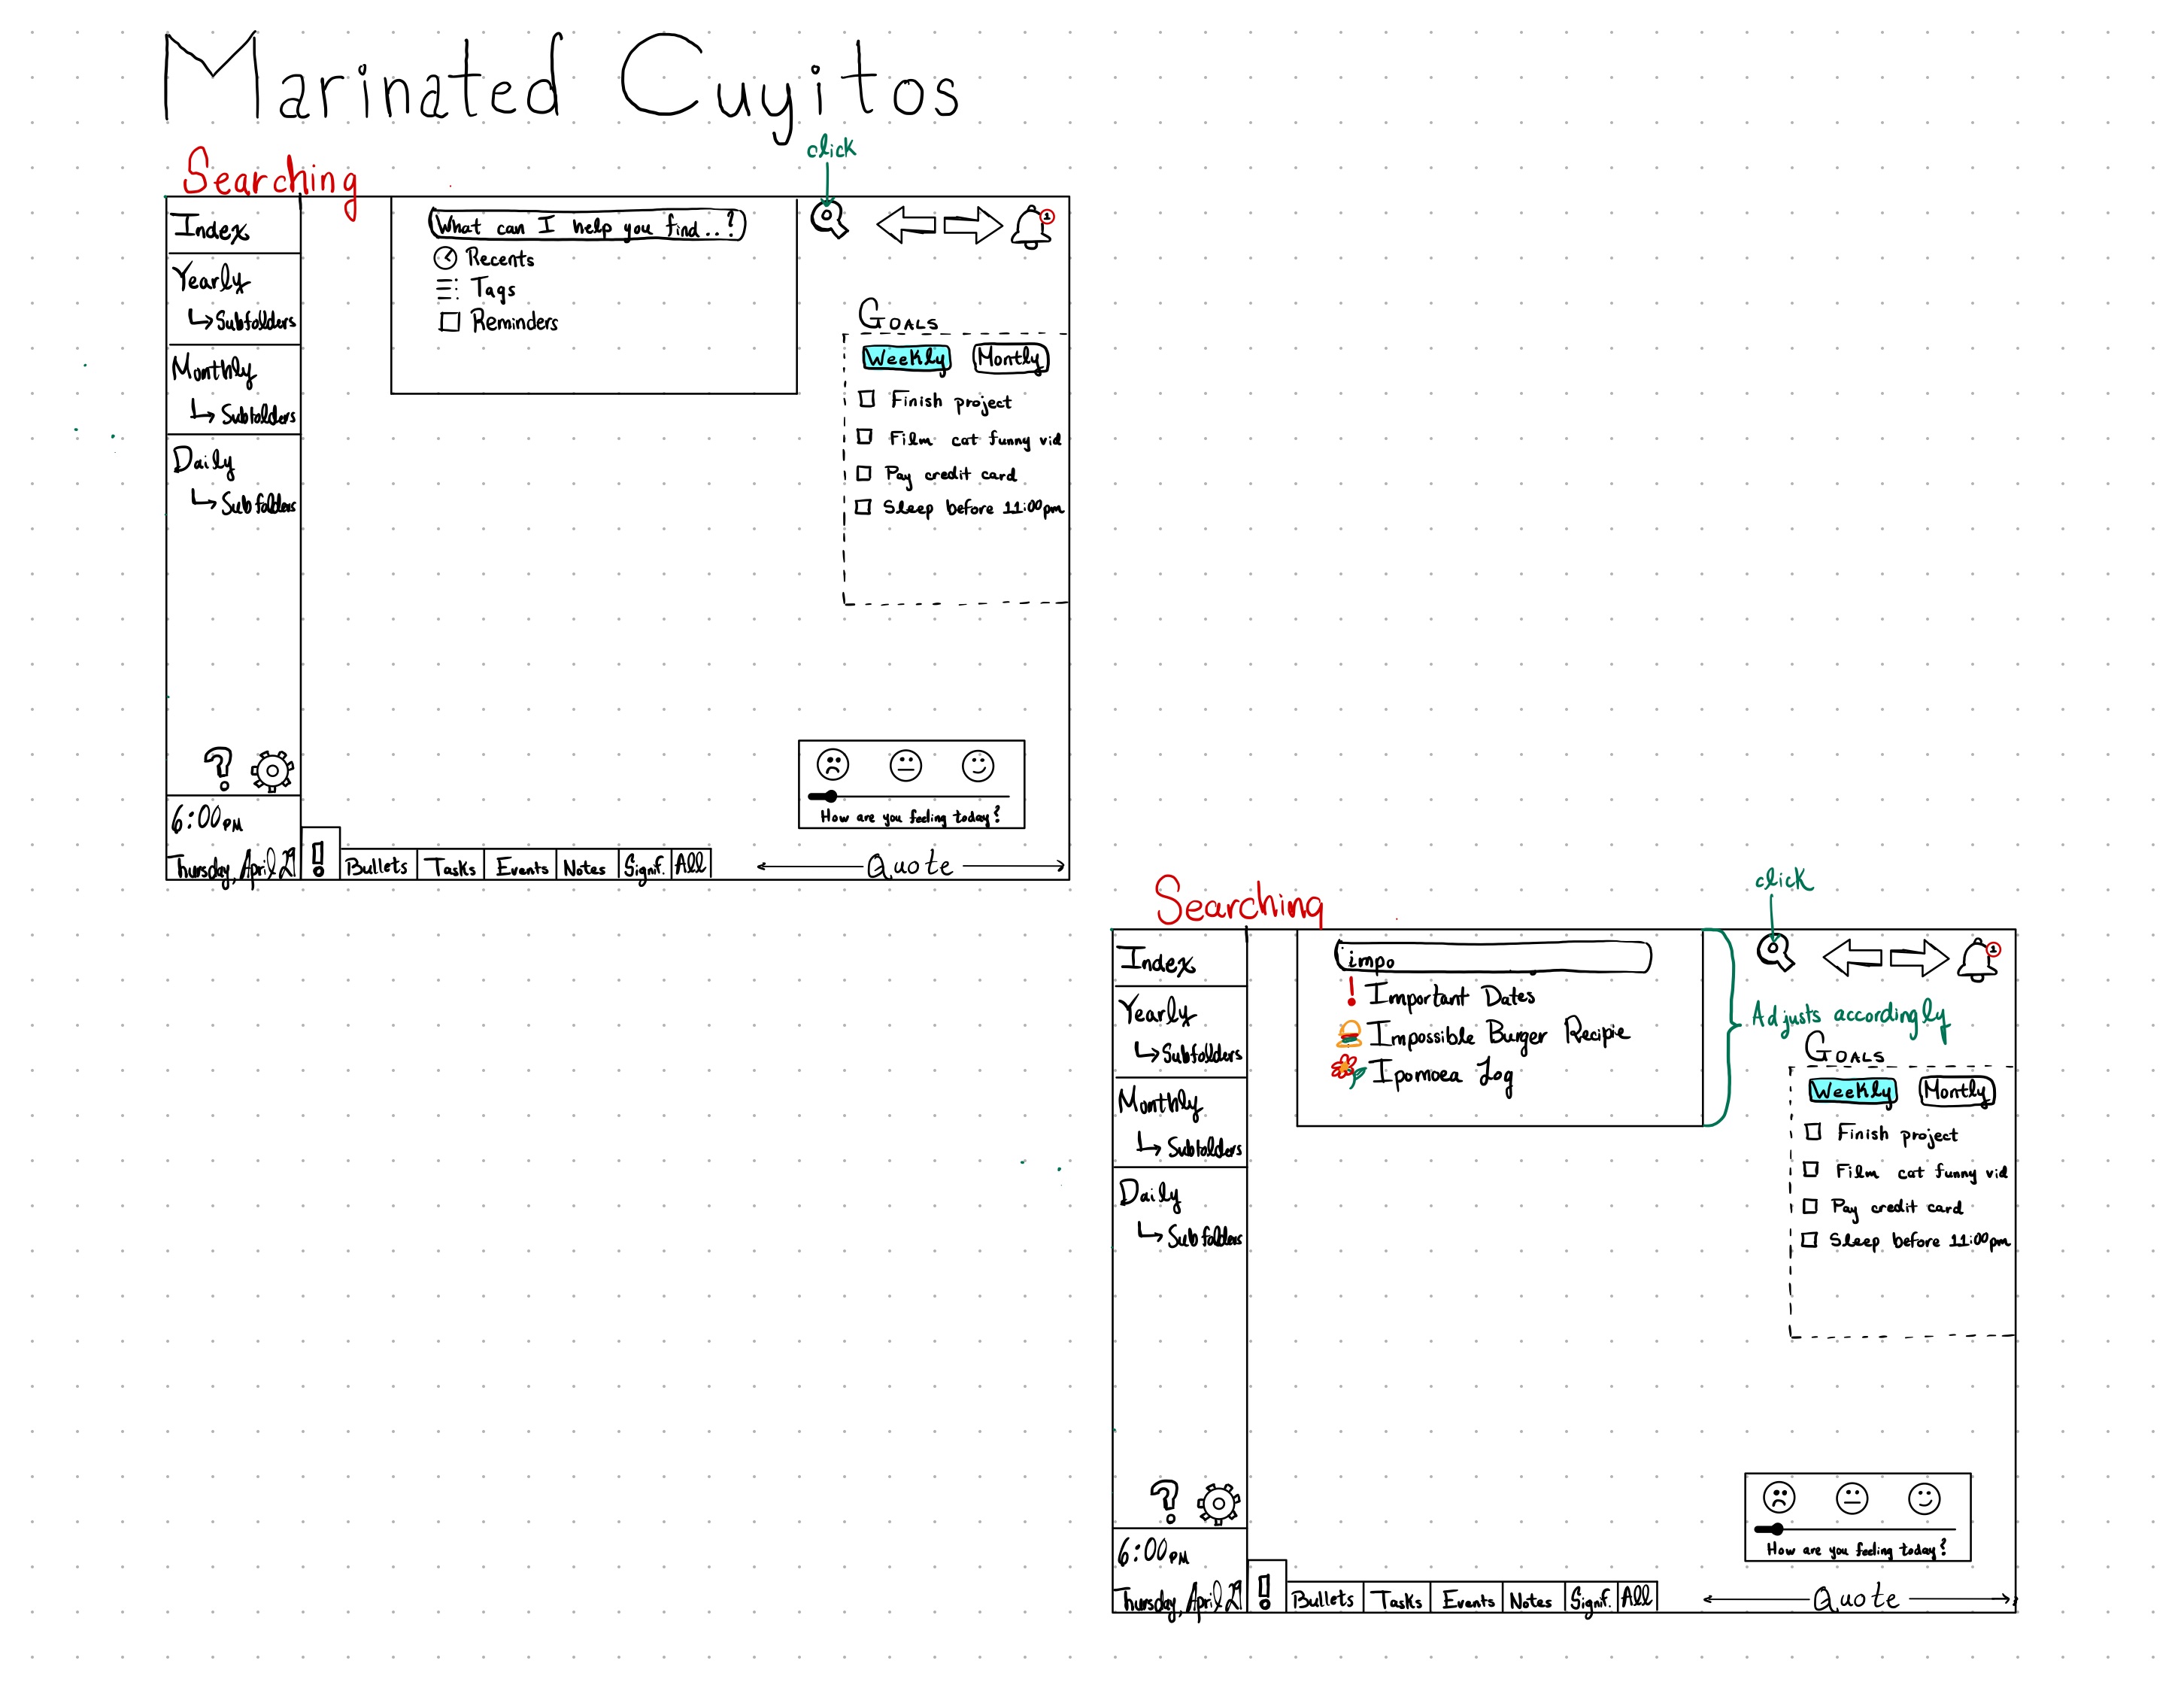 Marinated Cuyitos
Searching
click
Index
Yearly
Subfolders
Monthly
Subfolders
Daily
Subfolders
?
6:00PM
Thursday, April 29
What can I help you find..?
Recents
Tags
Reminders
1
GOALS
Weekly
Montly
Finish project
Film cat funny vid
Pay credit card
Sleep before 11:00pm
How are you feeling today?
! Bullets Tasks Events Notes Signif. All
Quote
Searching
click
Index
Yearly
Subfolders
Monthly
Subfolders
Daily
Subfolders
?
6:00PM
Thursday, April 29
impo
! Important Dates
Impossible Burger Recipie
Ipomoea Log
1
Adjusts accordingly
GOALS
Weekly
Montly
Finish project
Film cat funny vid
Pay credit card
Sleep before 11:00pm
How are you feeling today?
! Bullets Tasks Events Notes Signif. All
Quote